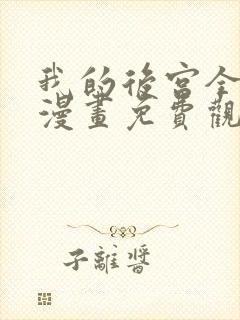 我的後宮全
漫畫免費觀
子離醬